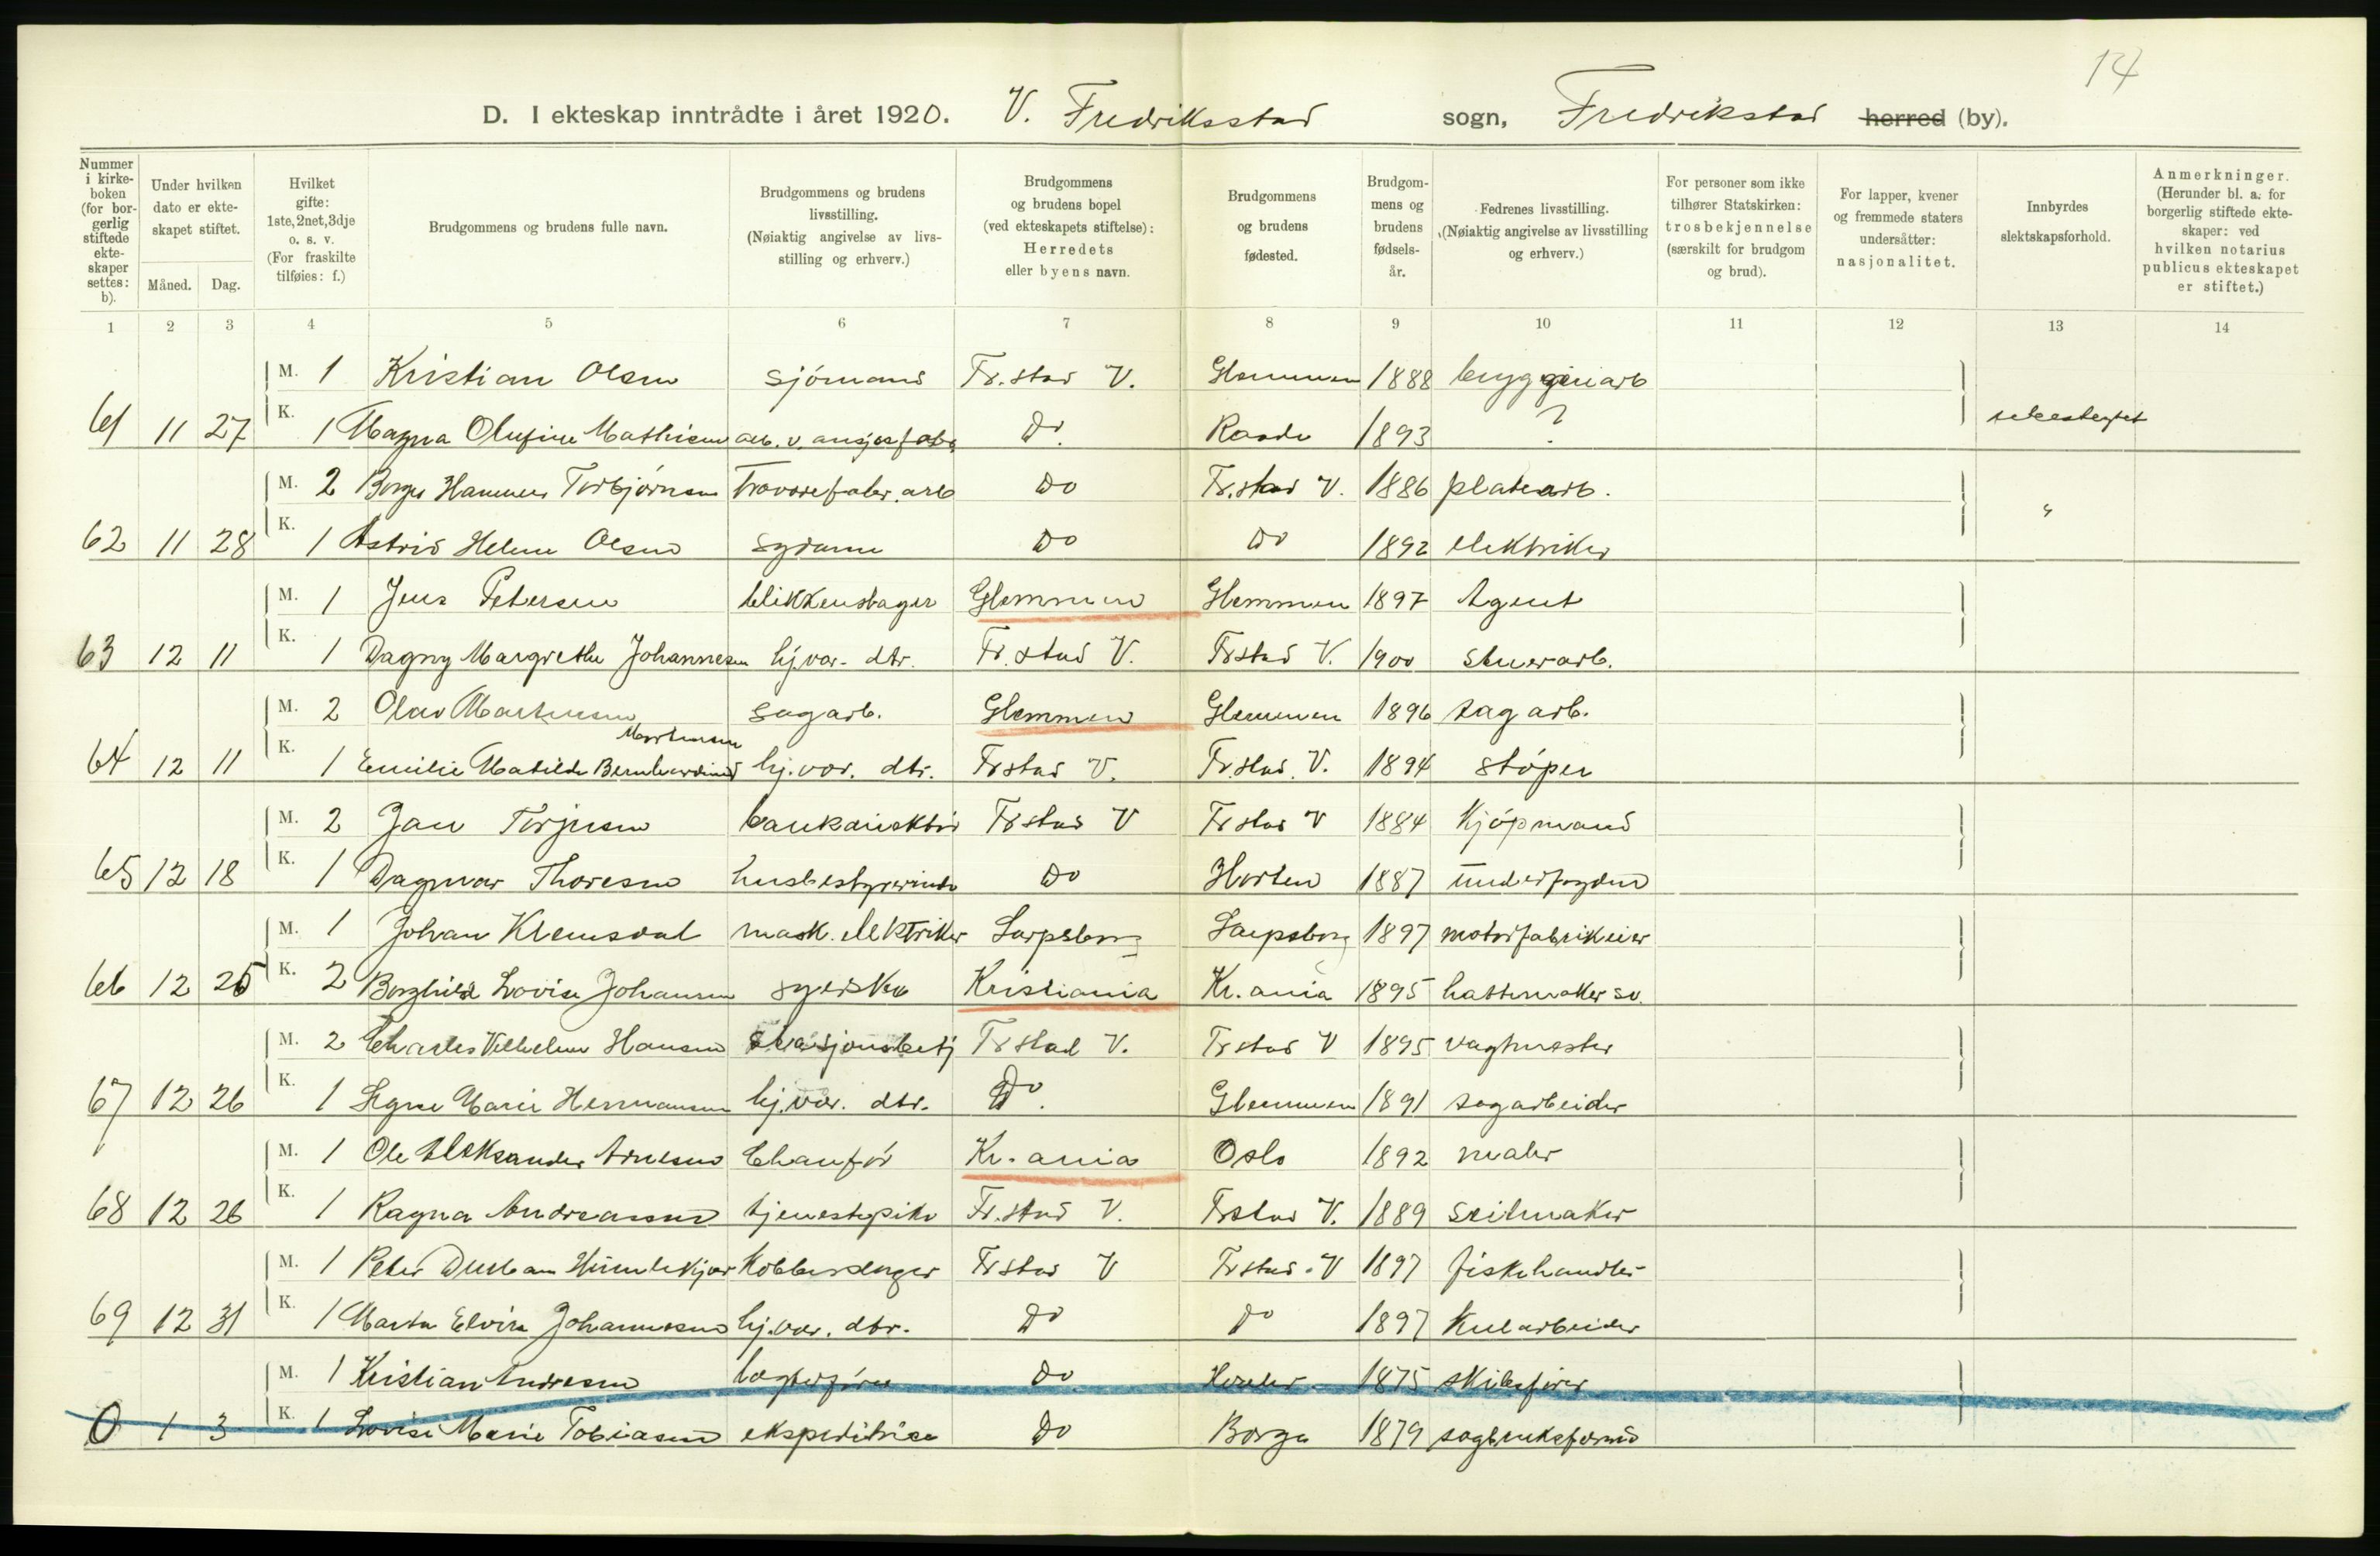 14
D. I ekteskap inntrådte i året 1920. V. Fredriksstad sogn, Fredrikstad herred (by).
Nummer i kirkeboken (for borgerlig stiftede ekteskaper settes: b).
Under hvilken dato er ekteskapet stiftet.
Måned. Dag.
Hvilket gifte: 1ste, 2net, 3dje o. s. v. (For fraskilte tilføies: f.)
Brudgommens og brudens fulle navn.
Brudgommens og brudens livsstilling. (Nøiaktig angivelse av livsstilling og erhverv.)
Brudgommens og brudens bopel (ved ekteskapets stiftelse): Herredets eller byens navn.
Brudgommens og brudens fødested.
Brudgommens og brudens fødselsår.
Fedrenes livsstilling. (Nøiaktig angivelse av livsstilling og erhverv.)
For personer som ikke tilhører Statskirken: trosbekjennelse (særskilt for brudgom og brud).
For lapper, kvener og fremmede staters undersåtter: nasjonalitet.
Innbyrdes slektskapsforhold.
Anmerkninger. (Herunder bl. a. for borgerlig stiftede ekteskaper: ved hvilken notarius publicus ekteskapet er stiftet.)
1 2 3 4 5 6 7 8 9 10 11 12 13 14
M. 1 Kristian Olsen sjömand Fr.stad V. Glemmen 1888 bryggeriarb
61 11 27 K. 1 Magna Olufine Mathisen arb. v. ansjosfabr Do. Raade 1893 ?
M. 2 Hammer Torbjørnsen Trævarefabr. arb Do Fr.stad V. 1886 platearb.
62 11 28 K. 1 Astrid Helene Olsen Sydame Do Do 1892 elektriker "
M. 1 Jens Petersen blikkenslager Glemmen Glemmen 1897 Agent
63 12 11 K. 1 Dagny Margrethe Johannesen hj.vær. dtr. Fr.stad V. Frstad V. 1900 Stuerarb.
M. 2 Olav Martinsen Sagarb. Glemmen Glemmen 1896 Sagarb.
64 12 11 K. 1 Emilie Matilde Bernhardine Mortensen hj.vær. dtr. Frstad V. Fr.stad V. 1894 Støper
M. 2 Jan Torjusen bankdirektör Frstad V Frstad V 1884 Kjøpmand
65 12 18 K. 1 Dagmar Thoresen husbestyrerinde Do Horten 1887 Underfogden
M. 1 Johan Klemsdal mask. elektriker Sarpsborg Sarpsborg 1897 motorfabrikeier
66 12 25 K. 2 Borghild Lovise Johansen syerske Kristiania Kr.ania 1895 hattemaker sv.
M. 2 Charles Vilhelm Hansen stasjonsbetj Frstad V. Frstad V 1895 vagtmester
67 12 26 K. 1 Signe Marie Hermansen hj.vær. dtr. Do. Glemmen 1891 sagarbeider
M. 1 Ole Aleksander Arnesen Chaufför Kr.ania Oslo 1892 maler
68 12 26 K. 1 Ragna Andreassen tjenestepike Fr.stad V. Frstad V. 1889 Seilmaker
M. 1 Peter Kobberslager Frstad V Frstad V 1897 fiskehandler
69 12 31 K. 1 Marta Elvira Johannesen hj.vær. dtr. Do Do 1897 Kularbeider
M. 1 Kristian Andresen lægterfører Do Hvaler 1875 skibsfører
0 1 3 K. 1 Lovise Marie Tobiasen ekspeditrise Do Borge 1879 sagbruksformd